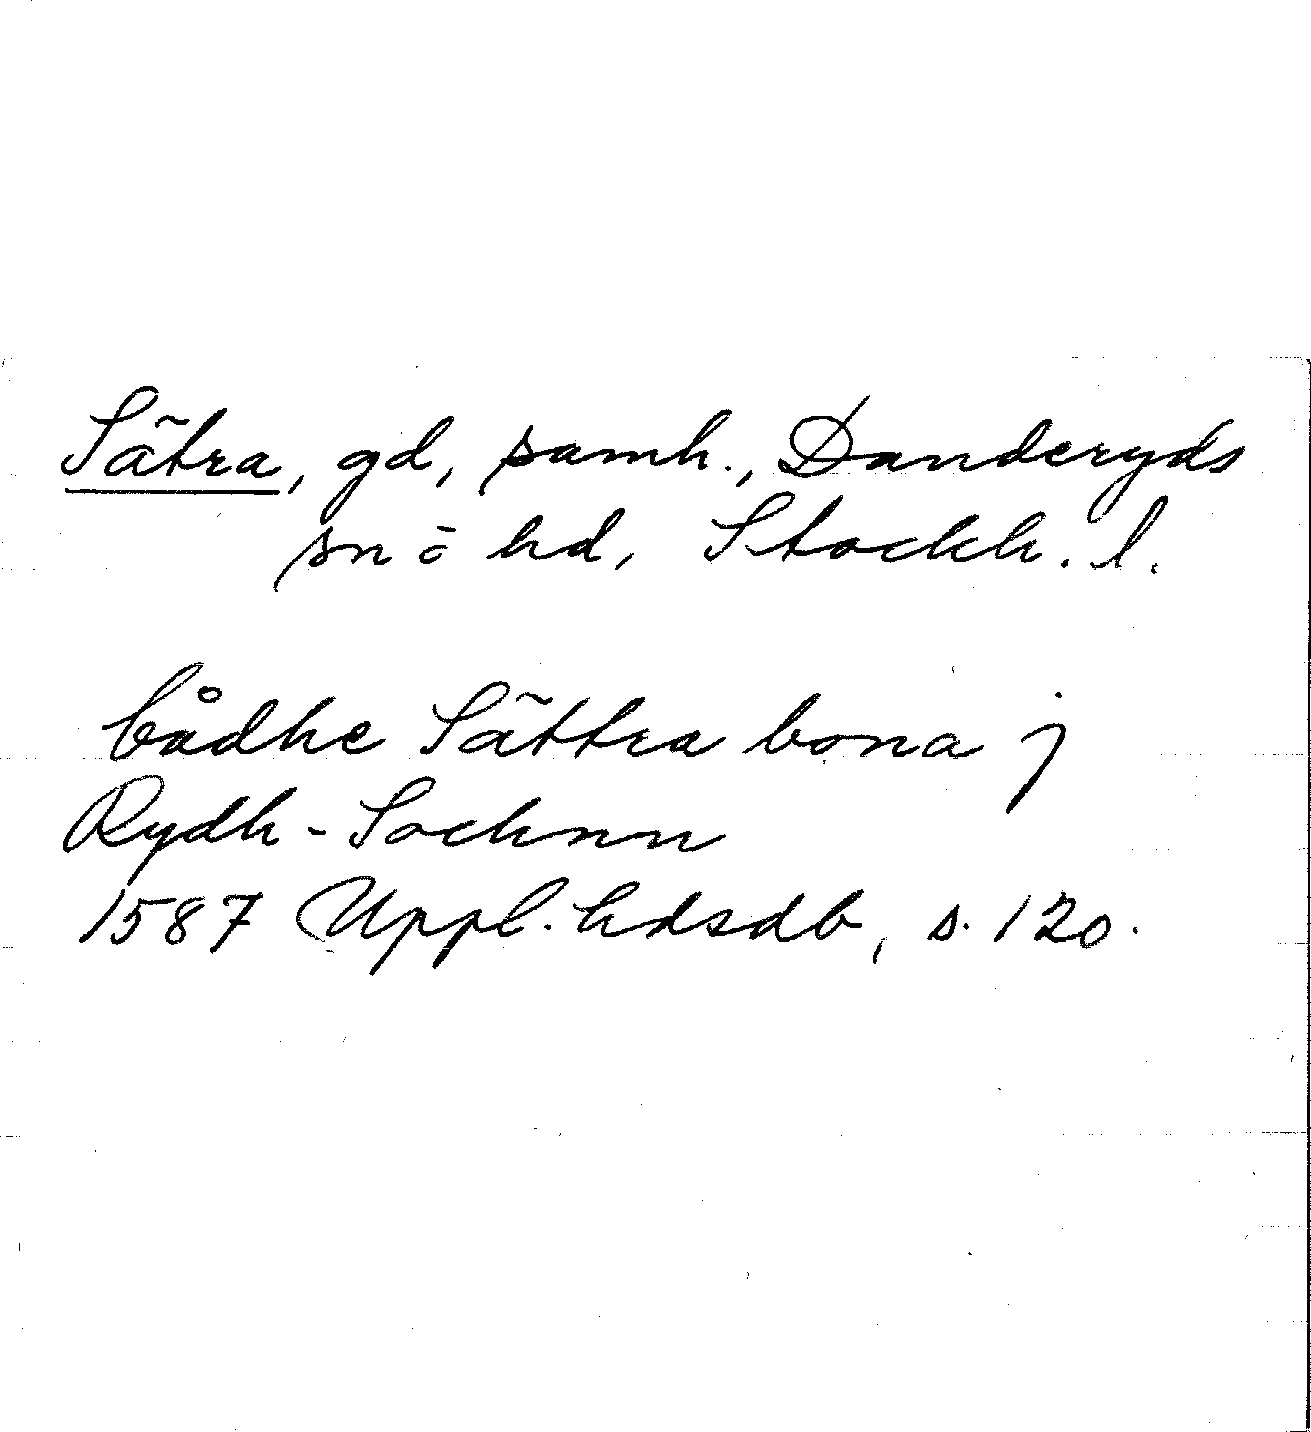 Sätra, gd, samh., Danderyds
sn ö hd, Stockh. l.
bådhe Sättra bona j
Rydh-Sochnn
1587 Uppl. hdsdb, s. 120.